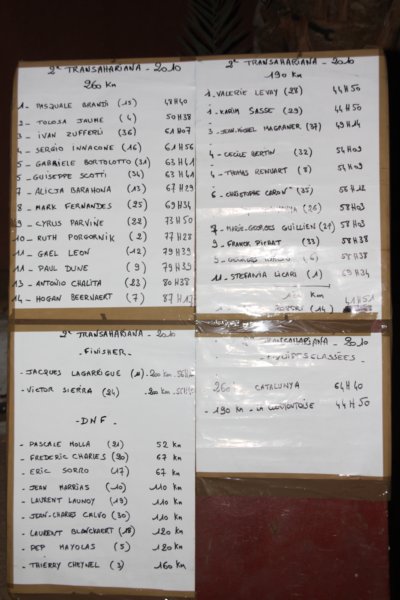 2e TRANSAHARIANA - 2010
260 Km
1 - PASQUALE BRANDI (15) 48H40
2 - TOLOSA JAUME (4) 50H38
3 - IVAN ZUFFERLI (36) 61H07
4 - SERGIO INNACONE (16) 61H56
5 - GABRIELE BORTOLOTTO (31) 63H41
5 - GUISEPPE SCOTTI (34) 63H41
7 - ALICJA BARAHONA (13) 67H29
8 - MARK FERNANDES (25) 69H34
9 - CYRUS PARVINE (22) 73H50
10 - RUTH PORGORNIK (2) 77H28
11 - GAEL LEON (12) 79H39
11 - PAUL DUNE (9) 79H39
13 - ANTONIO CHALITA (23) 80H38
14 - HOGAN BEERNAERT (7)
2e TRANSAHARIANA - 2010
190 Km
1 - VALERIE LEVAY (28) 44H50
1 - KARIM SASSE (29) 44H50
3 - JEAN-MICHEL MAGRANER (37) 49H14
4 - CECILE BERTIN (32) 54H09
4 - THOMAS RENUART (8) 54H09
6 - CHRISTOPHE (35)
(26) 58H03
7 - MARIE-GEORGES GUILLIEN (21) 58H03
9 - FRANCK PICBAT (33) 58H38
9 - GEORGES (6) 58H38
11 - STEFANIA LICARI (1) 69H34
Km
(14) 41H51
2e TRANSAHARIANA - 2010
- FINISHER -
- JACQUES LAGARRIGUE (11) - 200 Km
- VICTOR SIERRA (24) - 200 Km
- DNF -
- PASCALE MOLLA (21) 52 Km
- FREDERIC CHARLES (20) 67 Km
- ERIC SORRO (17) 67 Km
- JEAN MARRIAS (10) 110 Km
- LAURENT LAUNOY (19) 110 Km
- JEAN-CHARLES CALVO (30) 110 Km
- LAURENT BLANCKAERT (18) 120 Km
- PEP MAYOLAS (5) 120 Km
- THIERRY CHEYNEL (3) 160 Km
2e TRANSAHARIANA - 2010
CLASSÉES -
260 CATALUNYA 64H40
- 190 Km - 44H50